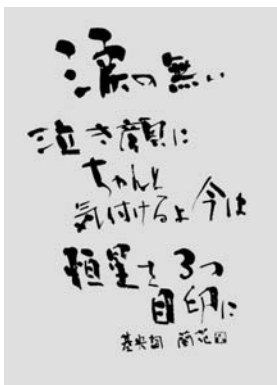 涙の無い
泣き顔に
ちゃんと
気付けるよ今は
恒星を3つ
目印に
蘭花